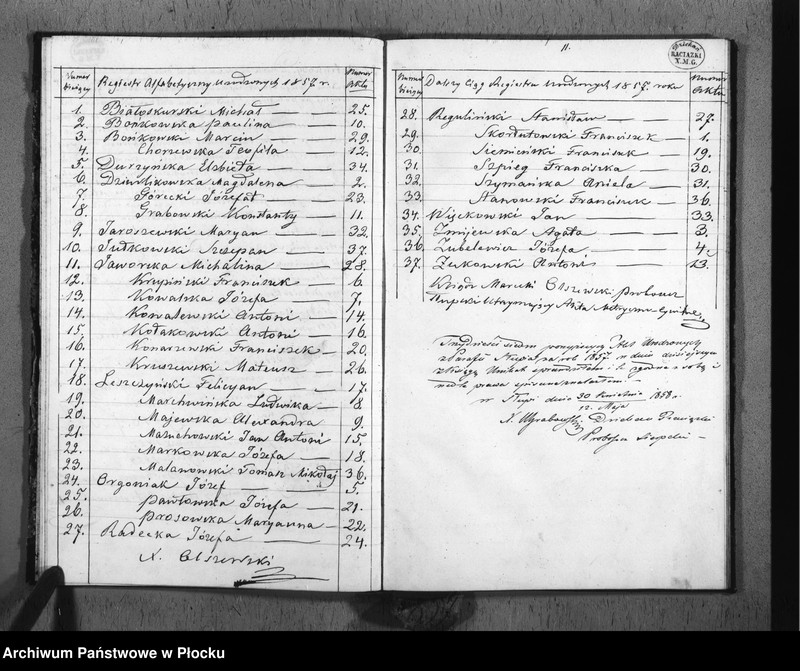 Numer bieżący Regiestr Alfabetyczny Urodzonych 1857 r. Numer Aktu
1. Białoskurski Michał 25.
2. Bońkowska Paulina 10.
3. Bońkowski Marcin 29.
4. Chorzewska Teofila 12.
5. Duczyńska Elżbieta 34.
6. Magdalena 2.
7. Górecki Józefat 23.
8. Grabowski Konstanty 11.
9. Jaroszewski Maryan 32.
10. Jutkowski Szczepan 37.
11. Jaworska Michalina 28.
12. Krupiński Franciszek 6.
13. Kowalska Józefa 7.
14. Kowalewski Antoni 14.
15. Kołakowski Antoni 16.
16. Konarzewski Franciszek 20.
17. Kruszewski Mateusz 26.
18. Leszczyński Felicyan 17.
19. Marchwińska Ludwika 8.
20. Majewska Alexandra 9.
21. Małuchowski Jan Antoni 15.
22. Markowska Józefa 18.
23. Malanowski Tomasz Mikołaj 36.
24. Orgoniak Józef 5.
25. Pawłowska Józefa 21.
26. Prosowska Maryanna 22.
27. Radecka Józefa 24.
X. Olszewski
11.
RACIĄZKI
X.M.G.
Numer bieżący Dalszy Ciąg Regiestru Urodzonych 1857 roku Numer Aktu
28. Reguliński Stanisław 27.
29. Skordutowski Franciszek 1.
30. Siemieński Franciszek 19.
31. Szpieg Franciszka 30.
32. Szymańska Aniela 31.
33. Stanowski Franciszek 36.
34. Wijekowski Jan 33.
35. Żmijewska Agata 3.
36. Zubelewicz Józefa 4.
37. Żukowski Antoni 13.
Ksiądz Marceli Olszewski Proboszcz
Słupski Utrzymujący Akta
Trzydzieści siedm powyższych Akt Urodzonych
z Parafii Słupi za rok 1857 w dniu dzisiejszym
w Słupi dnia 30 Kwietnia 1858 r.
12 Maja
Dziekan Raciązki
Proboszcz
Archiwum Państwowe w Płocku